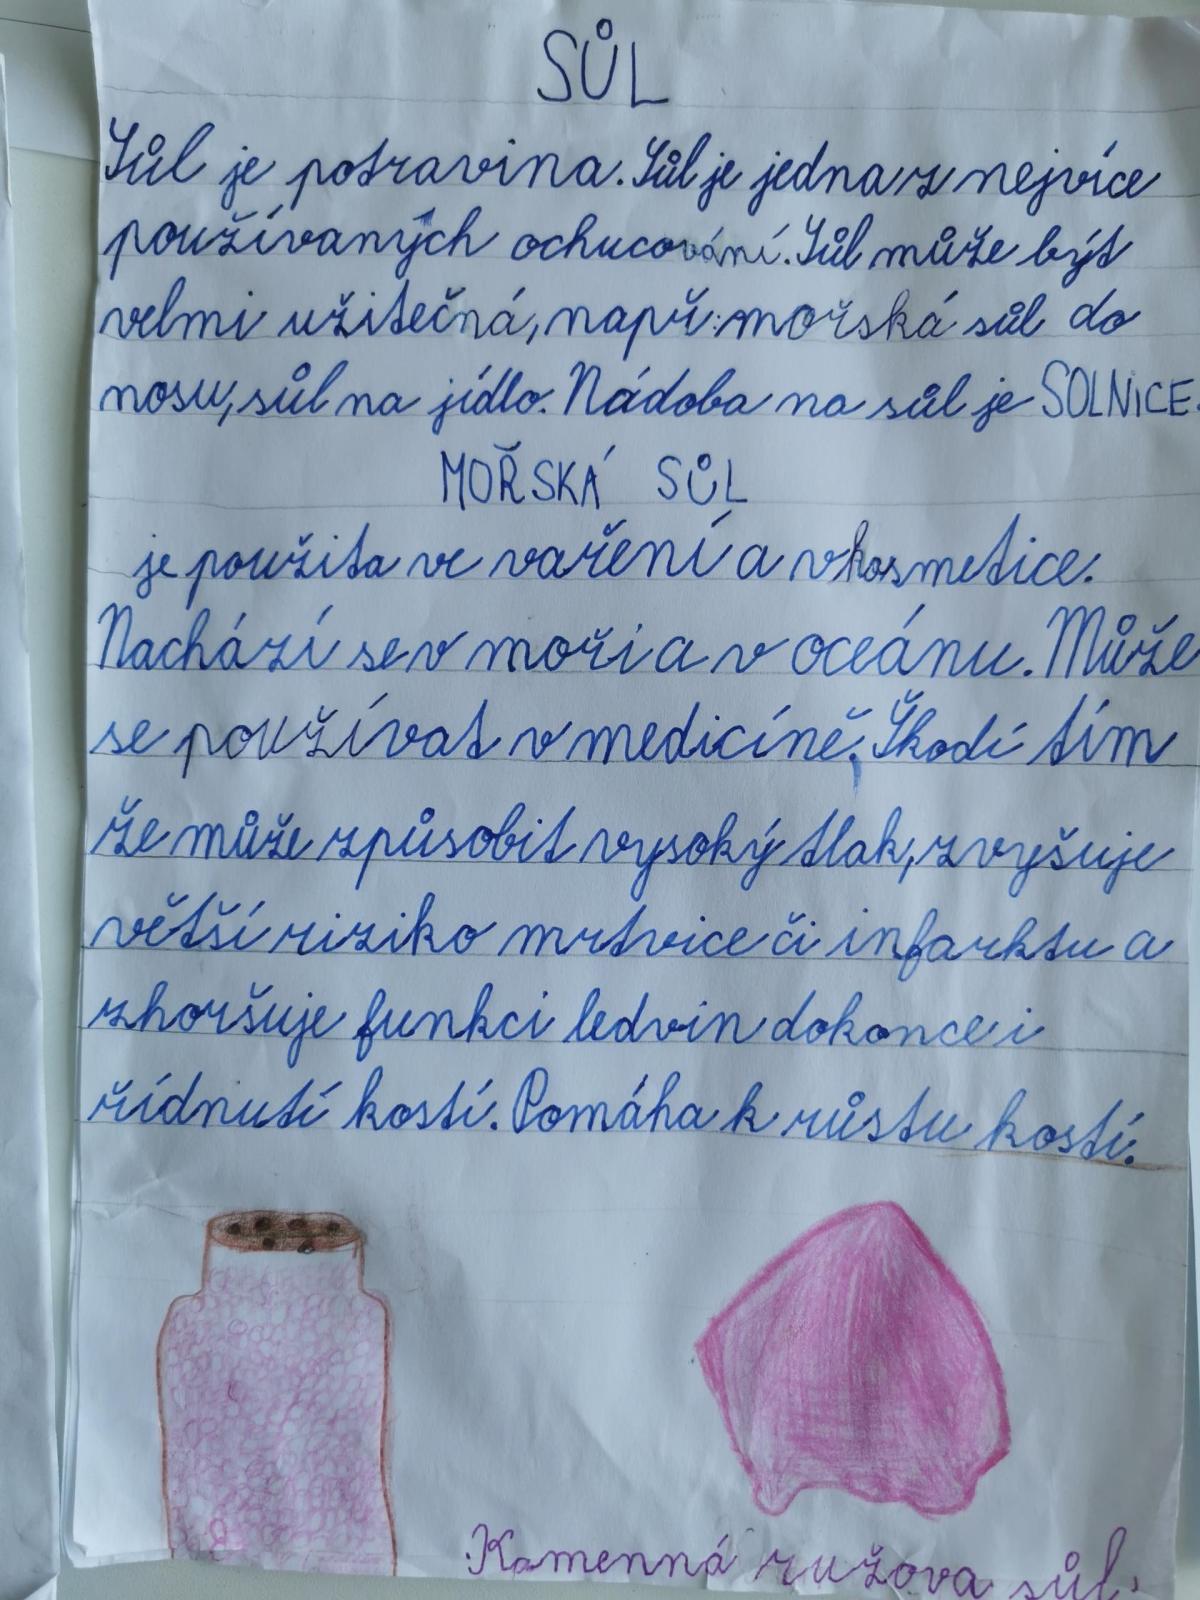 SŮL
Sůl je potravina. Sůl je jedna z nejvíce
používaných ochucování. Sůl může být
velmi užitečná, např: mořská sůl do
nosu, sůl na jídlo. Nádoba na sůl je SOLNiCE.
MOŘSKÁ SŮL
je použita ve vaření a v kosmetice.
Nachází se v moři a v oceánu. Může
se používat v medicíně. Škodí tím
že může způsobit vysoký tlak, zvyšuje
větší riziko mrtvice či infarktu a
zhoršuje funkci ledvin dokonce i
řídnutí kostí. Pomáha k růstu kostí.
Kamenná ružova sůl.